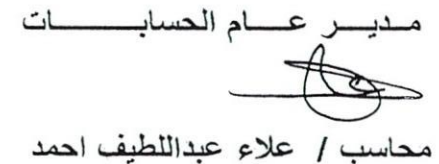 مديـر عـام الحسابـات
محاسب / علاء عبداللطيف احمد